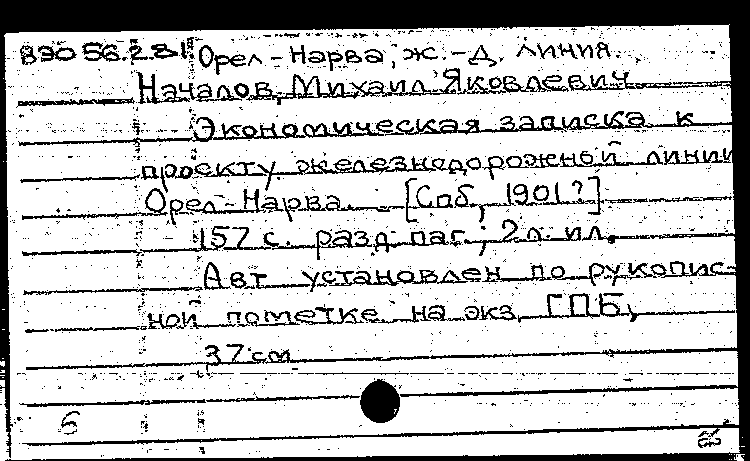 890 56.2.81 Орел-Нарва, ж.-д. линия.
Началов, Михаил Яковлевич
Экономическая записка к
проекту железнодорожной линии
Орел-Нарва. [Спб, 1901?]
157 с. разд. паг.; 2 л. ил.
Авт установлен по рукопис-
ной пометке на экз. ГПБ,
37 см
6